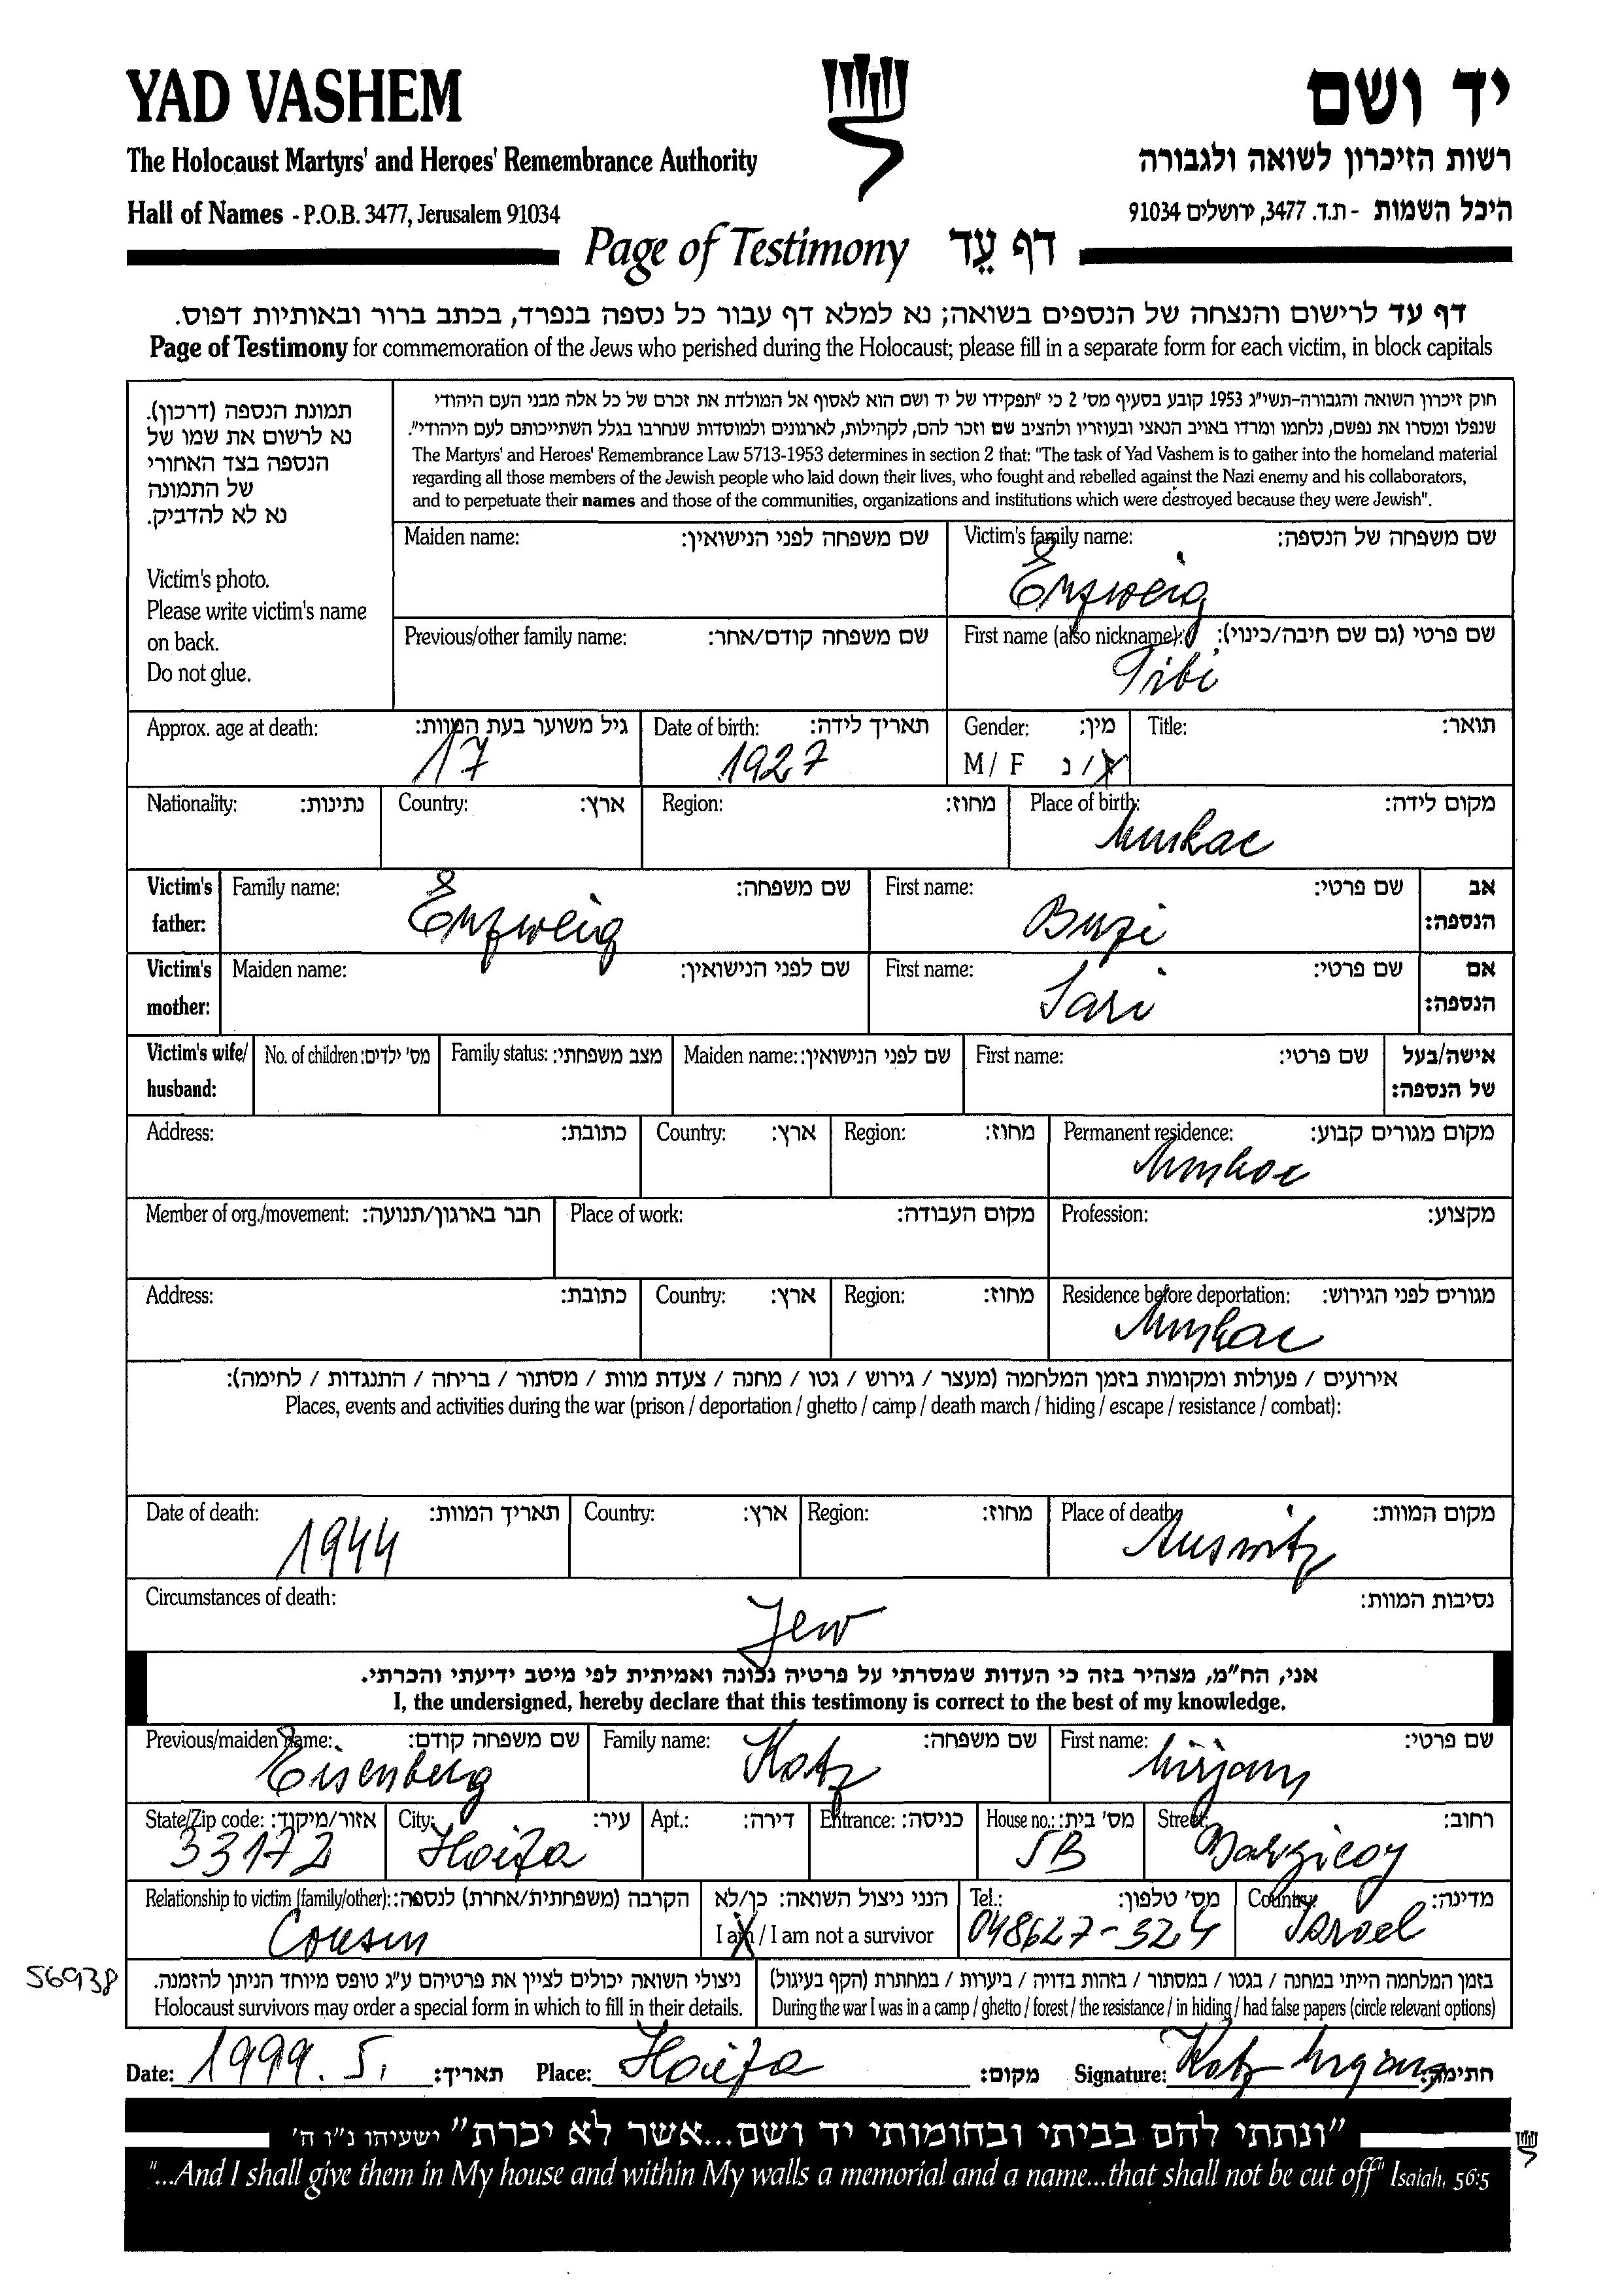 YAD VASHEM
יד ושם
The Holocaust Martyrs' and Heroes' Remembrance Authority
רשות הזיכרון לשואה ולגבורה
Hall of Names - P.O.B. 3477, Jerusalem 91034
היכל השמות - ת.ד. 3477, ירושלים 91034
Page of Testimony דף עֵד
דף עד לרישום והנצחה של הנספים בשואה; נא למלא דף עבור כל נספה בנפרד, בכתב ברור ובאותיות דפוס.
Page of Testimony for commemoration of the Jews who perished during the Holocaust; please fill in a separate form for each victim, in block capitals
תמונת הנספה (דרכון).
נא לרשום את שמו של
הנספה בצד האחורי
של התמונה
נא לא להדביק.
Victim's photo.
Please write victim's name
on back.
Do not glue.
חוק זיכרון השואה והגבורה-תשי"ג 1953 קובע בסעיף מס' 2 כי "תפקידו של יד ושם הוא לאסוף אל המולדת את זכרם של כל אלה מבני העם היהודי
שנפלו ומסרו את נפשם, נלחמו ומרדו באויב הנאצי ובעוזריו ולהציב שם וזכר להם, לקהילות, לארגונים ולמוסדות שנחרבו בגלל השתייכותם לעם היהודי".
The Martyrs' and Heroes' Remembrance Law 5713-1953 determines in section 2 that: "The task of Yad Vashem is to gather into the homeland material
regarding all those members of the Jewish people who laid down their lives, who fought and rebelled against the Nazi enemy and his collaborators,
and to perpetuate their names and those of the communities, organizations and institutions which were destroyed because they were Jewish".
Maiden name: שם משפחה לפני הנישואין:
Victim's family name: שם משפחה של הנספה:
Previous/other family name: שם משפחה קודם/אחר:
First name (also nickname): שם פרטי (גם שם חיבה/כינוי):
Tibi
Approx. age at death: גיל משוער בעת המוות:
17
Date of birth: תאריך לידה:
1927
Gender: מין:
M / F ז / נ
Title: תואר:
Nationality: נתינות:
Country: ארץ:
Region: מחוז:
Place of birth: מקום לידה:
Munkac
Victim's father: Family name: שם משפחה:
First name: שם פרטי:
אב הנספה:
Buzi
Victim's mother: Maiden name: שם לפני הנישואין:
First name: שם פרטי:
אם הנספה:
Sari
Victim's wife/ husband: No. of children: מס' ילדים:
Family status: מצב משפחתי:
Maiden name: שם לפני הנישואין:
First name: שם פרטי:
אישה/בעל של הנספה:
Address: כתובת:
Country: ארץ:
Region: מחוז:
Permanent residence: מקום מגורים קבוע:
Munkac
Member of org./movement: חבר בארגון/תנועה:
Place of work: מקום העבודה:
Profession: מקצוע:
Address: כתובת:
Country: ארץ:
Region: מחוז:
Residence before deportation: מגורים לפני הגירוש:
Munkac
אירועים / פעולות ומקומות בזמן המלחמה (מעצר / גירוש / גטו / מחנה / צעדת מוות / מסתור / בריחה / התנגדות / לחימה):
Places, events and activities during the war (prison / deportation / ghetto / camp / death march / hiding / escape / resistance / combat):
Date of death: תאריך המוות:
1944
Country: ארץ:
Region: מחוז:
Place of death: מקום המוות:
Auswitz
Circumstances of death: נסיבות המוות:
Jew
אני, הח"מ, מצהיר בזה כי העדות שמסרתי על פרטיה נכונה ואמיתית לפי מיטב ידיעתי והכרתי.
I, the undersigned, hereby declare that this testimony is correct to the best of my knowledge.
Previous/maiden name: שם משפחה קודם:
Eisenberg
Family name: שם משפחה:
Katz
First name: שם פרטי:
Mirjam
State/Zip code: אזור/מיקוד:
33172
City: עיר:
Haifa
Apt.: דירה:
Entrance: כניסה:
House no.: מס' בית:
5B
Street: רחוב:
Relationship to victim (family/other): הקרבה (משפחתית/אחרת) לנספה:
Cousin
הנני ניצול השואה: כן/לא
I am / I am not a survivor
Tel.: מס' טלפון:
048627-324
Country: מדינה:
Israel
56938
ניצולי השואה יכולים לציין את פרטיהם ע"ג טופס מיוחד הניתן להזמנה.
Holocaust survivors may order a special form in which to fill in their details.
בזמן המלחמה הייתי במחנה / בגטו / במסתור / בזהות בדויה / ביערות / במחתרת (הקף בעיגול)
During the war I was in a camp / ghetto / forest / the resistance / in hiding / had false papers (circle relevant options)
Date: 1999. 5. תאריך:
Place: Haifa מקום:
Signature: Katz Mirjam חתימה:
"ונתתי להם בביתי ובחומותי יד ושם...אשר לא יכרת" ישעיהו נ"ו ה'
"...And I shall give them in My house and within My walls a memorial and a name...that shall not be cut off" Isaiah, 56:5